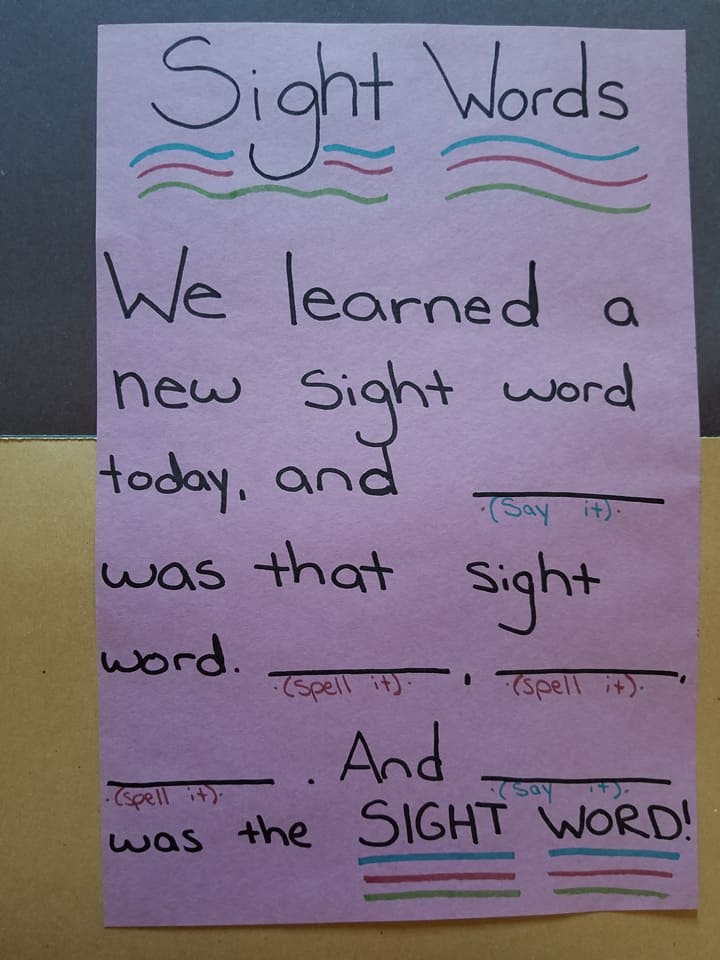 Sight Words
We learned a
new sight word
today, and ________
·(Say it)·
was that sight
word. ________, ________,
·(spell it)· ·(spell it)·
________. And ________
·(spell it)· ·(Say it)·
was the SIGHT WORD!